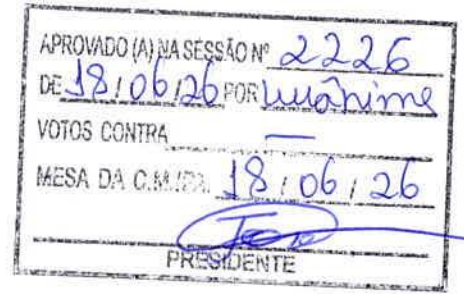 APROVADO (A) NA SESSÃO Nº 2226
DE 18/06/26 POR unânime
VOTOS CONTRA —
MESA DA C.M. 18/06/26
PRESIDENTE